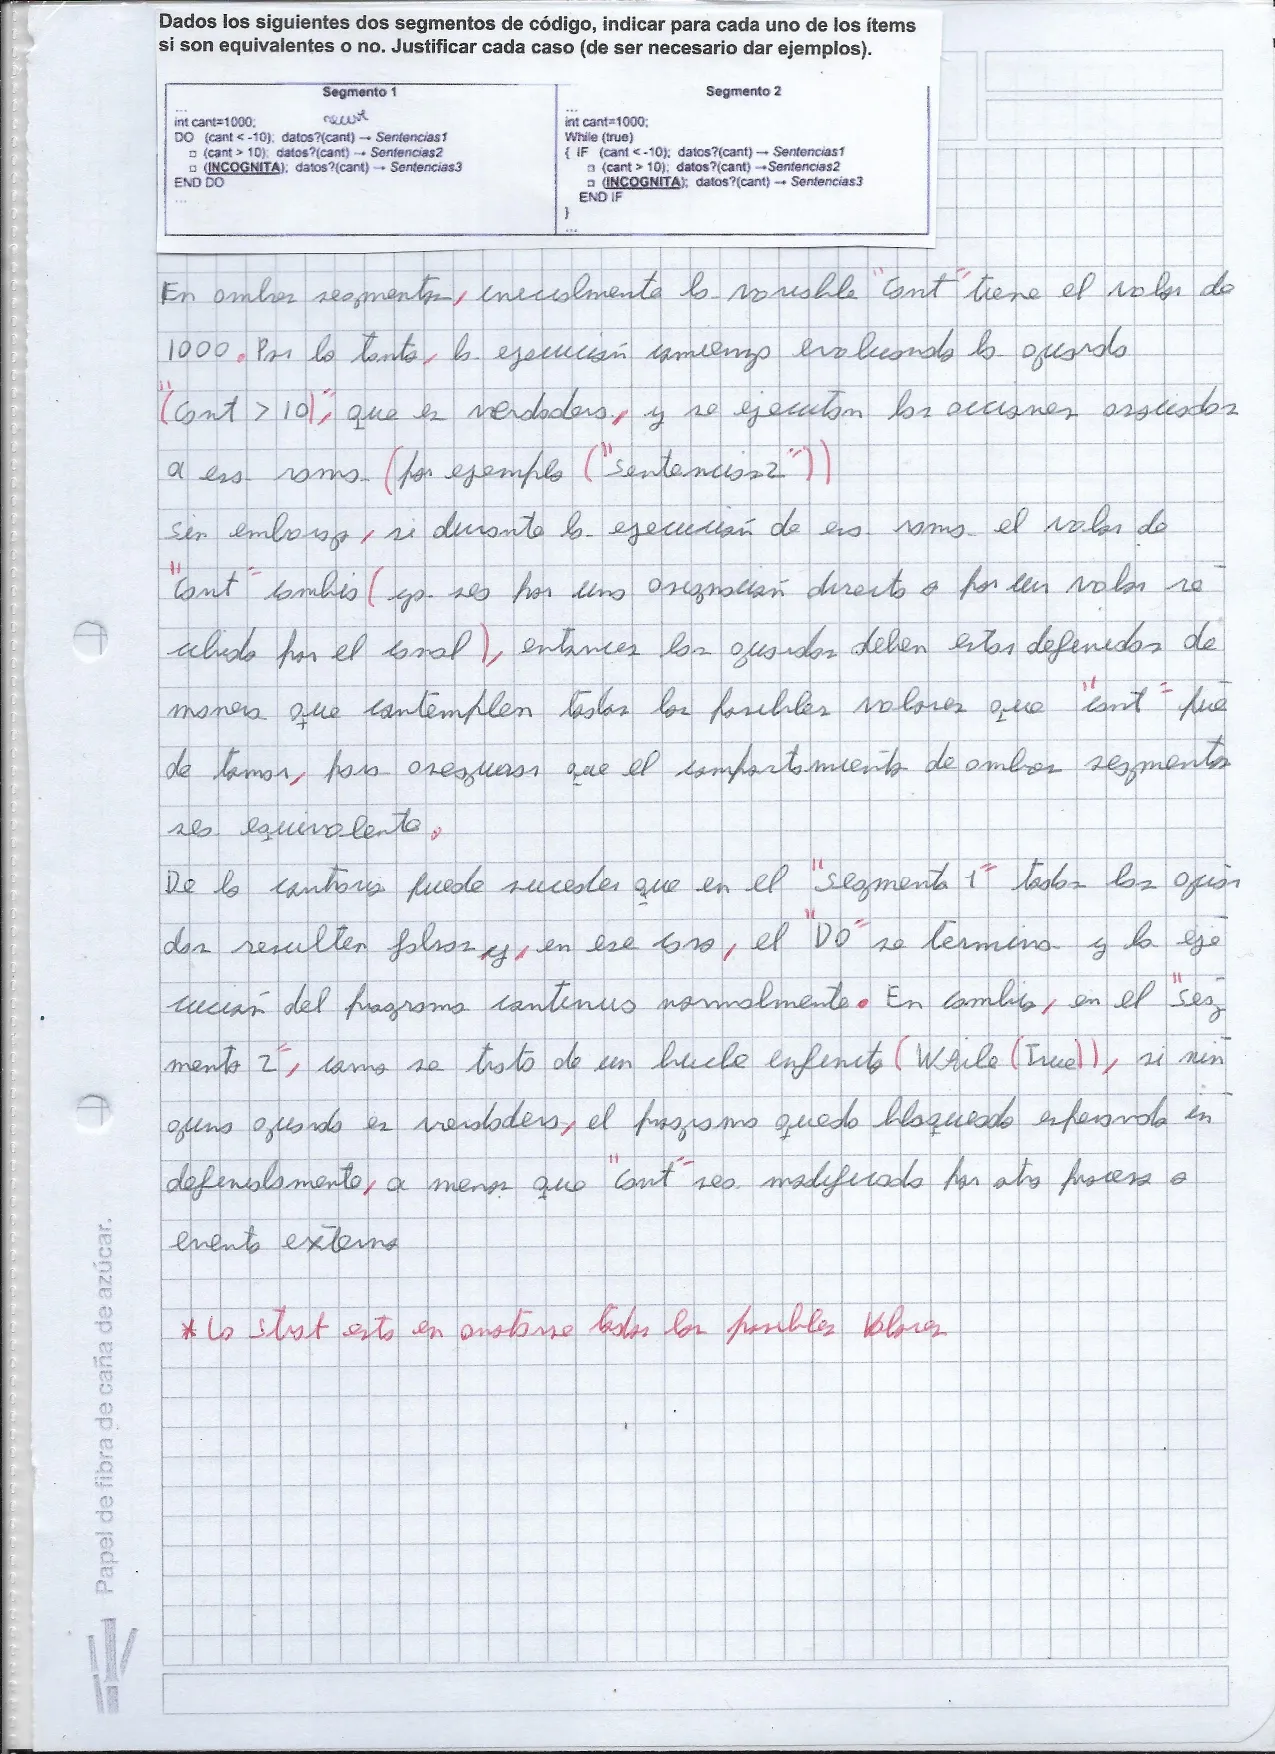 Dados los siguientes dos segmentos de código, indicar para cada uno de los ítems
si son equivalentes o no. Justificar cada caso (de ser necesario dar ejemplos).
Segmento 1
...
int cant=1000;
DO (cant < -10); datos?(cant) → Sentencias1
□ (cant > 10); datos?(cant) → Sentencias2
□ (INCOGNITA); datos?(cant) → Sentencias3
END DO
...
Segmento 2
...
int cant=1000;
While (true)
{ IF (cant < -10); datos?(cant) → Sentencias1
□ (cant > 10); datos?(cant) → Sentencias2
□ (INCOGNITA); datos?(cant) → Sentencias3
END IF
}
...
En ambos segmentos, inicialmente la variable "cant" tiene el valor de
1000. Por lo tanto, la ejecución comienza evaluando la guarda
"(cant > 10)", que es verdadera, y se ejecutan las acciones asociadas
a esa rama (por ejemplo ("sentencias2"))
Sin embargo, si durante la ejecución de esa rama el valor de
"cant" cambia (ya sea por una asignación directa o por un valor re
cibido por el canal), entonces las guardas deben estar definidas de
manera que contemplen todos los posibles valores que "cant" pue
de tomar, para asegurar que el comportamiento de ambos segmentos
sea equivalente.
De lo contrario puede suceder que en el "segmento 1" todas las guar
das resulten falsas y, en ese caso, el "DO" se termina y la eje
cución del programa continua normalmente. En cambio, en el "seg
mento 2", como se trata de un bucle infinito (While (True)), si nin
guna guarda es verdadera, el programa queda bloqueado esperando in
definidamente, a menos que "cant" sea modificada por otro proceso o
evento externo
* La start esta en anotarse todos los posibles Valores
Papel de fibra de caña de azúcar.